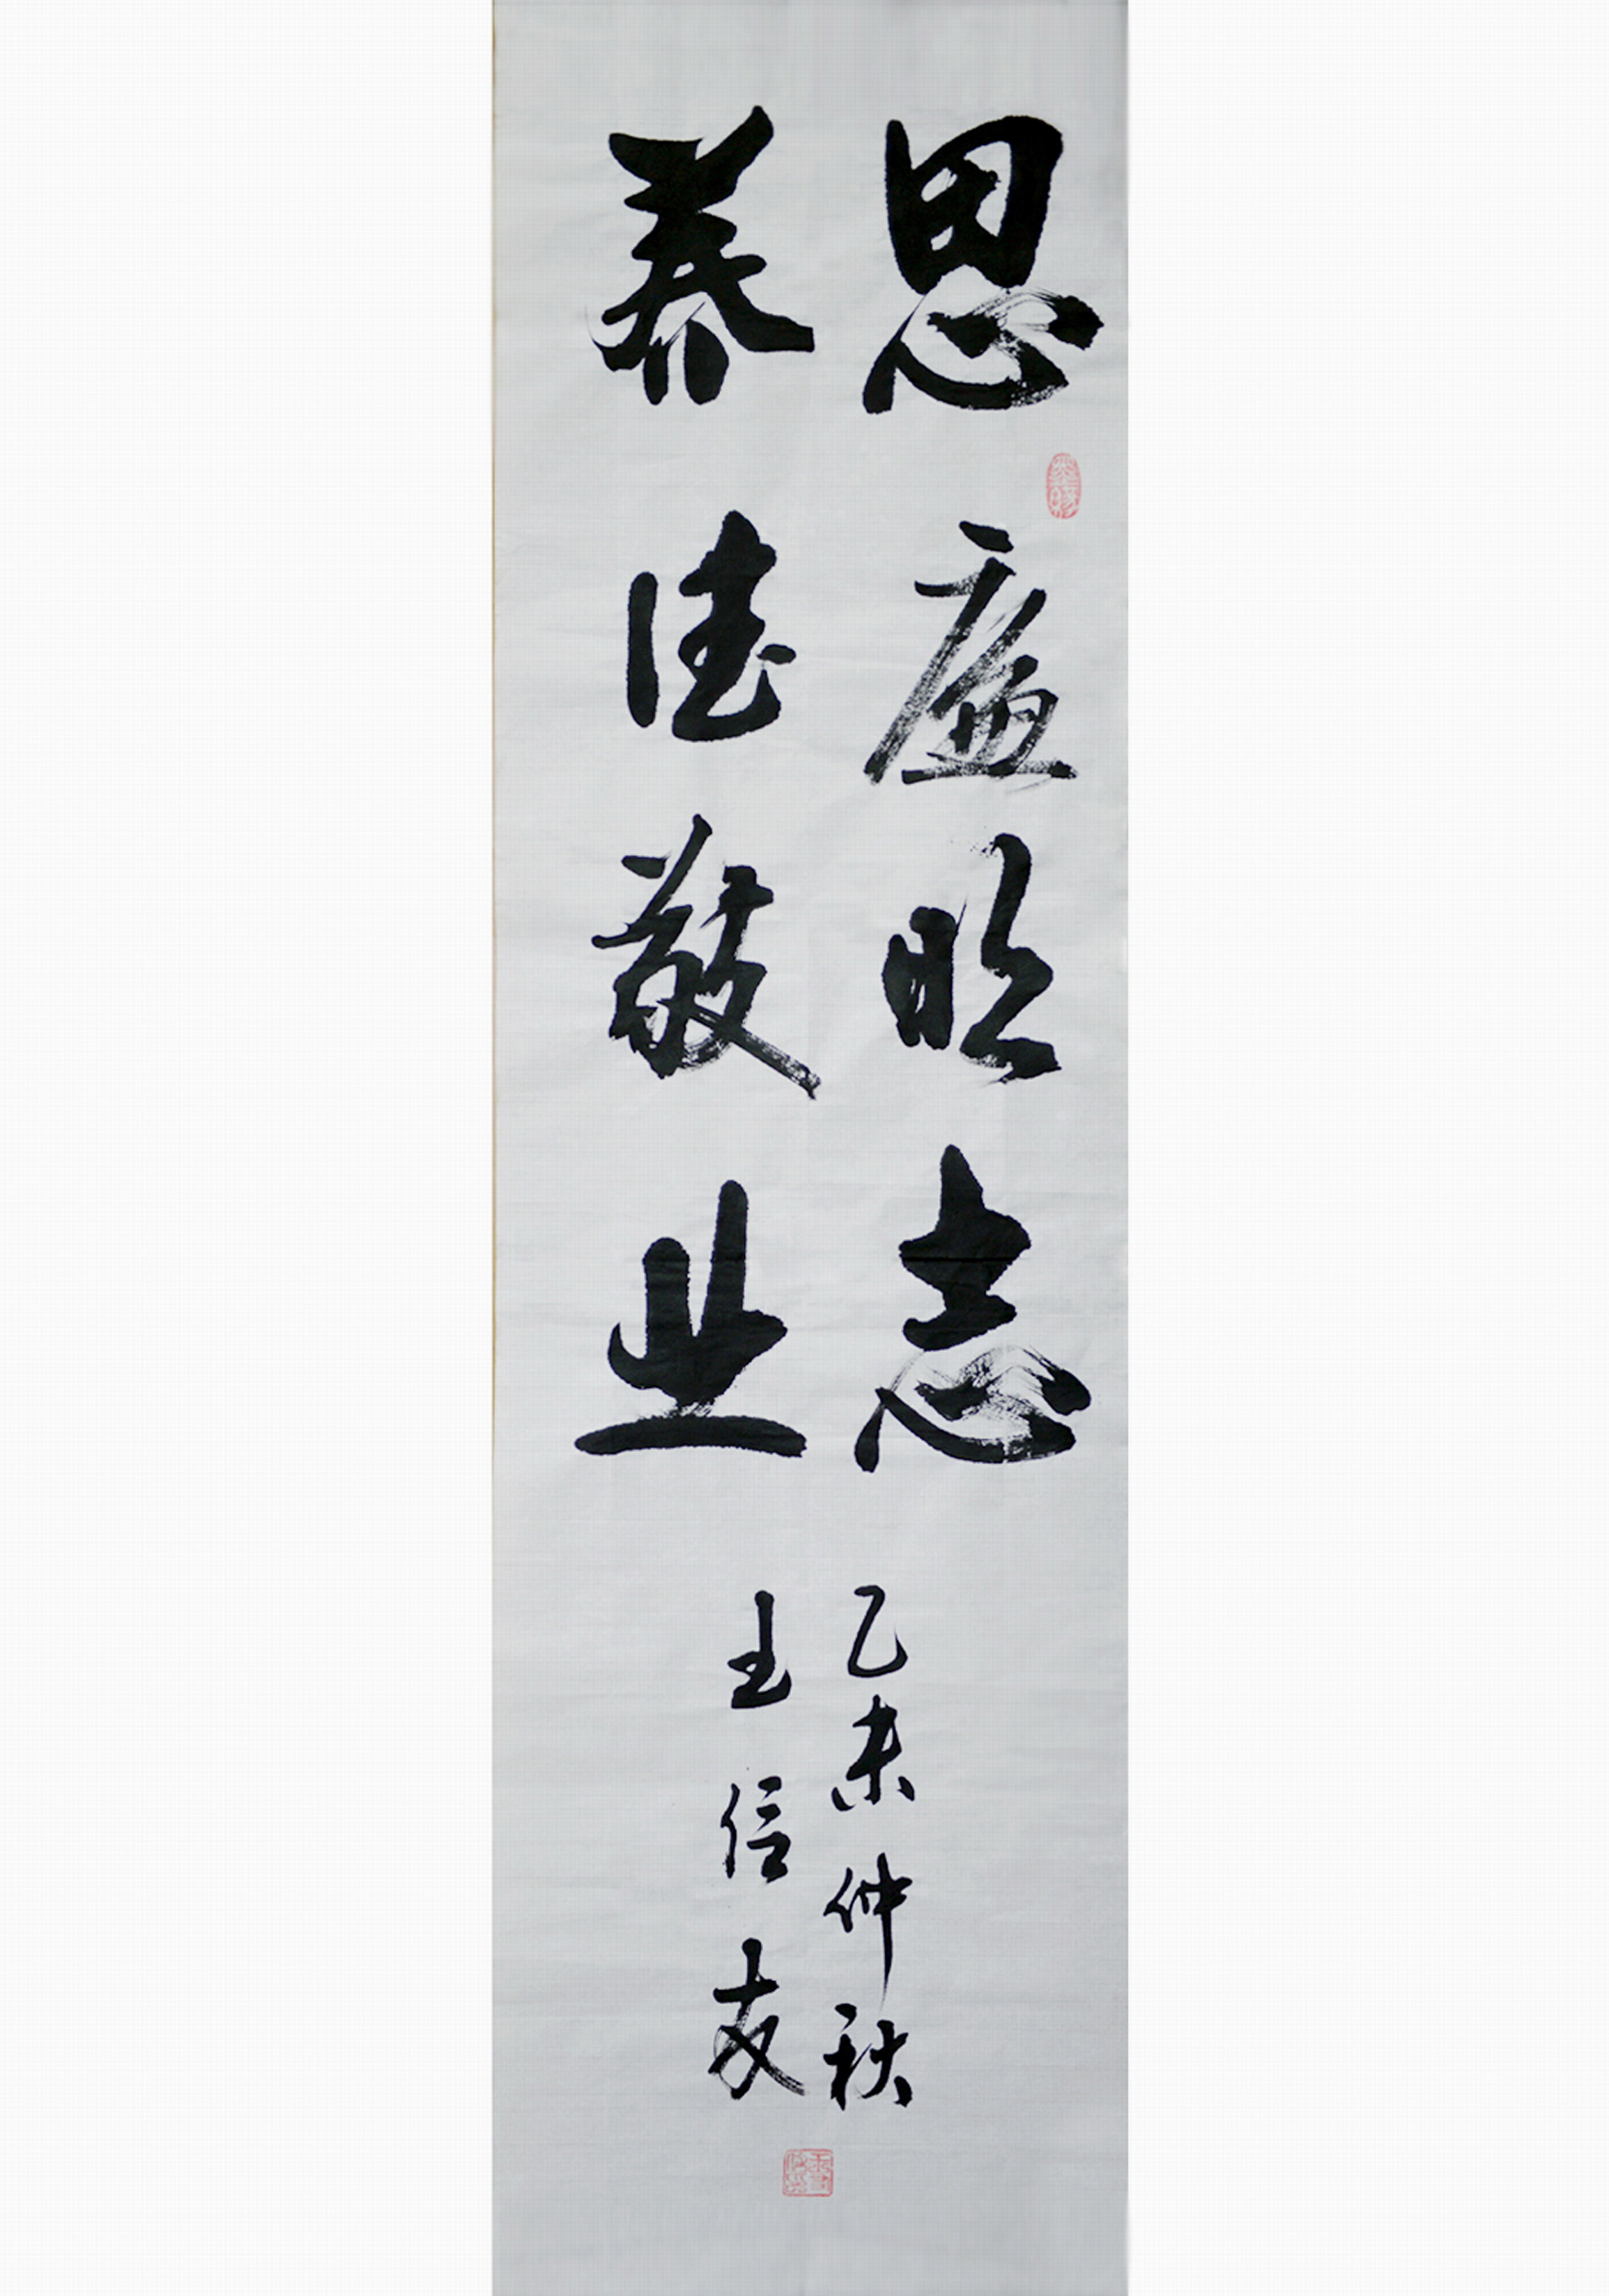 思廉明志
养德敬业
乙未仲秋
王信友